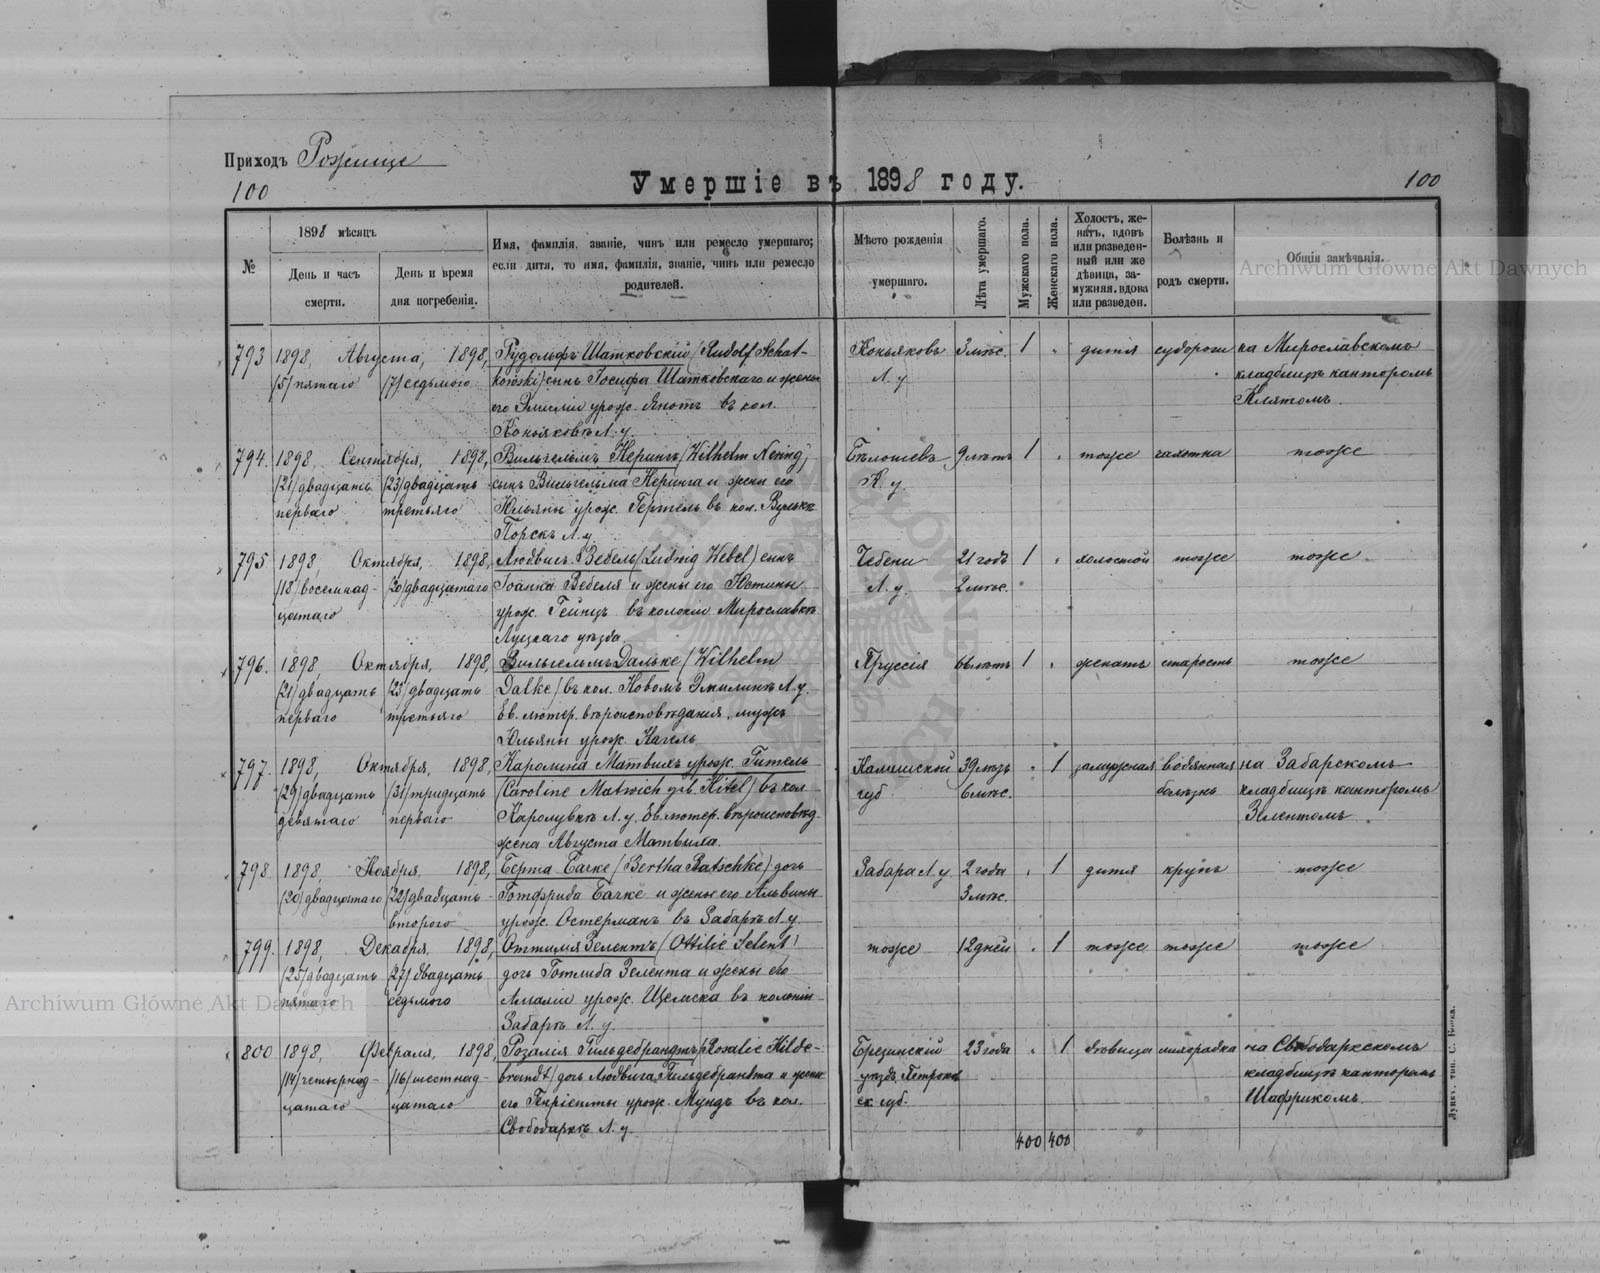 Приходъ Рожище
100
Умершіе въ 1898 году.
100
№
1898 мѣсяцъ
День и часъ смерти.
День и время дня погребенія.
Имя, фамилія, званіе, чинъ или ремесло умершаго;
если дитя, то имя, фамилія, званіе, чинъ или ремесло
родителей.
Мѣсто рожденія
умершаго.
Лѣта умершаго.
Мужскаго пола.
Женскаго пола.
Холостъ, же-
натъ, вдовъ
или разведен-
ный или же
дѣвица, за-
мужняя, вдова
или разведен.
Болѣзнь и
родъ смерти.
Общія замѣчанія.
Archiwum Główne Akt Dawnych
793 1898, Августа, 1898, Рудольфъ Шатковскій (Rudolf Schat- Коньяковъ 3 мѣс. 1 дитя судороги на Мирославскомъ
(5) пятаго (7) седьмого kowski) сынъ Іосифа Шатковскаго и жены Л. у. кладбищѣ канторомъ
его Эмиліи урож. Янотъ въ кол. Клятомъ.
Коньяковкѣ Л. у.
794. 1898, Сентября, 1898, Вильгельмъ Нерингъ (Wilhelm Nering) 9 лѣтъ 1 тоже чахотка тоже
(21) двадцать (23) двадцать сынъ Вильгельма Неринга и жены его
перваго третьяго Юльяны урож. Гертель въ кол. Вулька
Порскъ Л. у.
795 1898, Октября, 1898, Людвигъ Вебель (Ludwig Webel) сынъ Чебени 21 годъ 1 холостой тоже тоже
(18) восемнад- (20) двадцатаго Іоанна Вебеля и жены его Юстины Л. у. 2 мѣс.
цатаго урож. Гейнцъ въ колоніи Мирославкѣ
Луцкаго уѣзда.
796. 1898, Октября, 1898, Вильгельмъ Дальке (Wilhelm Пруссія лѣтъ 1 женатъ старость тоже
(21) двадцать (23) двадцать Dalke) въ кол. Новомъ Эмилинѣ Л. у.
перваго третьяго Ев. лютер. вѣроисповѣданія, мужъ
Юльяны урож. Нагель
797. 1898, Октября, 1898, Каролина Матвихъ урож. Гитель Калишской 1 замужная водянная на Забарскомъ
(29) двадцать (31) тридцать (Caroline Matwich geb. Hitel) въ кол. губ. 6 мѣс. болѣзнь кладбищѣ канторомъ
девятаго перваго Каролувкѣ Л. у. Ев. лютер. вѣроисповѣд. Зелентомъ
жена Августа Матвиха.
798. 1898, Ноября, 1898, Берта Бачке (Bertha Batschke) дочь Забара Л. у. 2 года 1 дитя крупъ тоже
(20) двадцатаго (22) двадцать Готфрида Бачке и жены его Альвины 3 мѣс.
второго урож. Остерманъ въ Забарѣ Л. у.
799. 1898, Декабря, 1898, Оттилія Зелентъ (Ottilie Selent) тоже 12 дней 1 тоже тоже тоже
(25) двадцать (27) двадцать дочь Готлиба Зелента и жены его
пятаго седьмого Амаліи урож. въ колоніи
Забарѣ Л. у.
800 1898, Февраля, 1898, Розалія Гильдебрандтъ (Rosalie Hilde- Брезинскій 23 года 1 дѣвица лихорадка на Свободаркскомъ
(14) четырнад- (16) шестнад- brandt) дочь Людвига Гильдебрандта и жены уѣздъ Петроков- кладбищѣ канторомъ
цатаго цатаго его Генріетты урож. Мундъ въ кол. ск. губ. Шафрикомъ.
Свободаркѣ Л. у.
400 400
Луцкъ, тип. С. Бонка.
Archiwum Główne Akt Dawnych